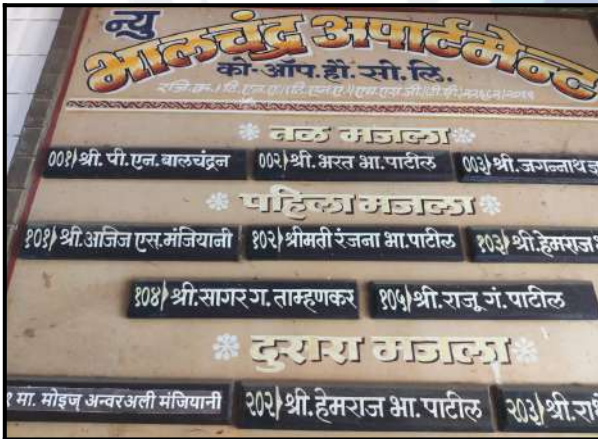 न्यु
भालचंद्र अपार्टमेन्ट
को-ऑप.हौ.सो.लि.
तळ मजला
००१) श्री. पी.एन.बालचंद्रन ००२) श्री. भरत भा. पाटील ००३) श्री. जगन्नाथ
पहिला मजला
१०१) श्री. अजिज एस. मंजियानी १०२) श्रीमती रंजना भा. पाटील १०३) श्री. हेमराज
१०४) श्री. सागर ग. ताम्हणकर १०५) श्री. राजू गं. पाटील
दुसरा मजला
मा. मोइज् अन्वरअली मंजियानी २०२) श्री. हेमराज भा. पाटील २०३) श्री.